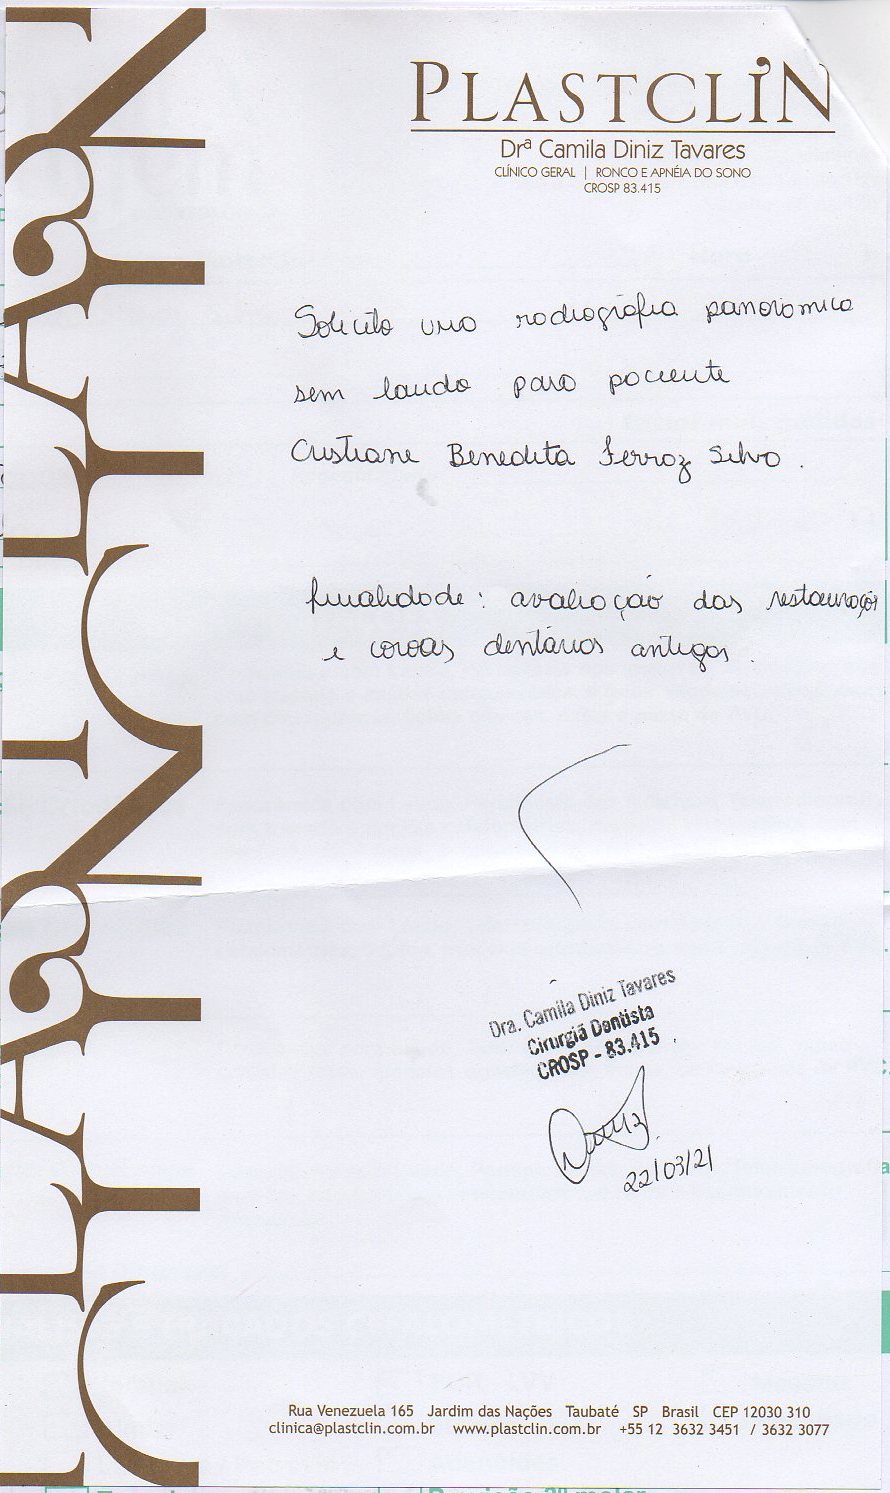 PLASTCLIN
Drª Camila Diniz Tavares
CLÍNICO GERAL | RONCO E APNÉIA DO SONO
CROSP 83.415
Solicito uma radiografia panorâmica
sem laudo para paciente
Cristiane Benedita Ferraz Silva.
finalidade: avaliação das restaurações
e coroas dentárias antigas.
Dra. Camila Diniz Tavares
Cirurgiã Dentista
CROSP - 83.415
22/03/21
Rua Venezuela 165 Jardim das Nações Taubaté SP Brasil CEP 12030 310
clinica@plastclin.com.br www.plastclin.com.br +55 12 3632 3451 / 3632 3077